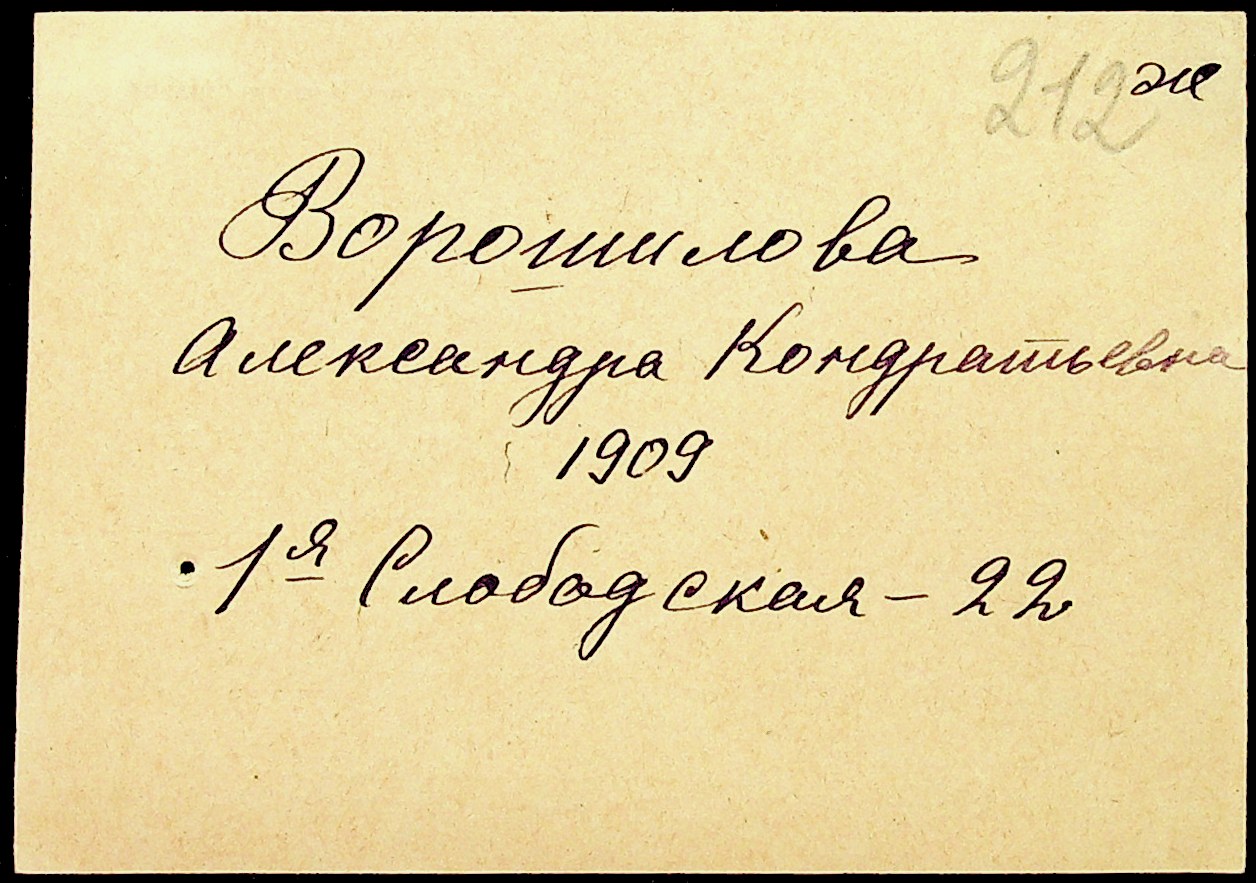 212 ж
Ворошилова
Александра Кондратьевна
1909
1я Слободская – 22